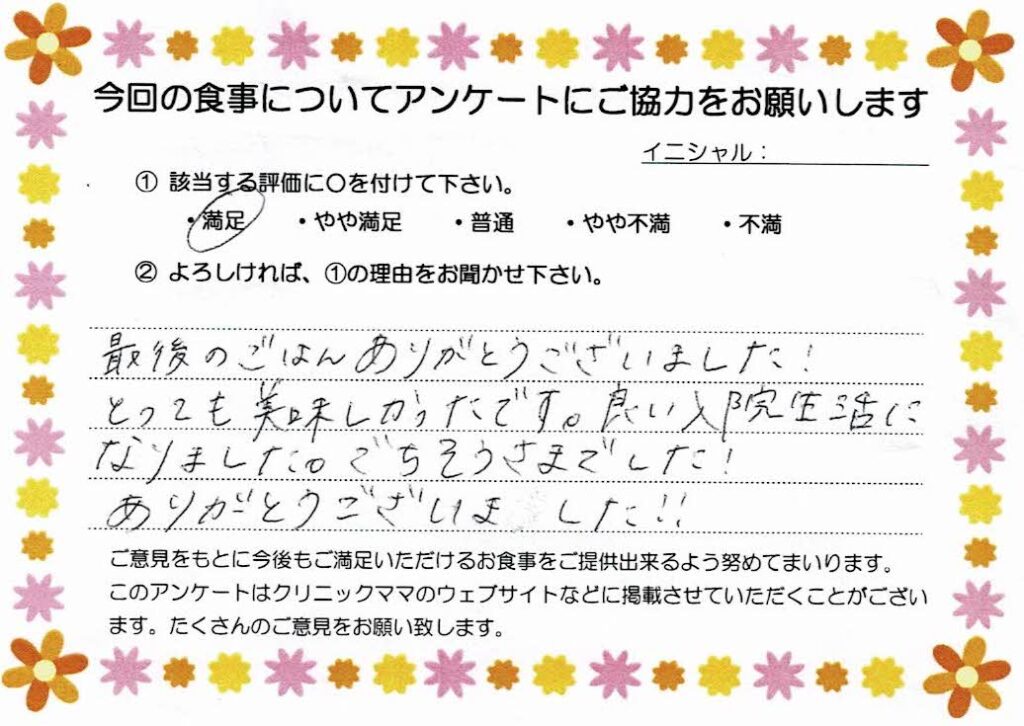 今回の食事についてアンケートにご協力をお願いします
イニシャル：
① 該当する評価に○を付けて下さい。
・満足 ・やや満足 ・普通 ・やや不満 ・不満
② よろしければ、①の理由をお聞かせ下さい。
最後のごはんありがとうございました!
とっても美味しかったです。良い入院生活に
なりました。ごちそうさまでした!
ありがとうございました!!
ご意見をもとに今後もご満足いただけるお食事をご提供出来るよう努めてまいります。
このアンケートはクリニックママのウェブサイトなどに掲載させていただくことがござい
ます。たくさんのご意見をお願い致します。